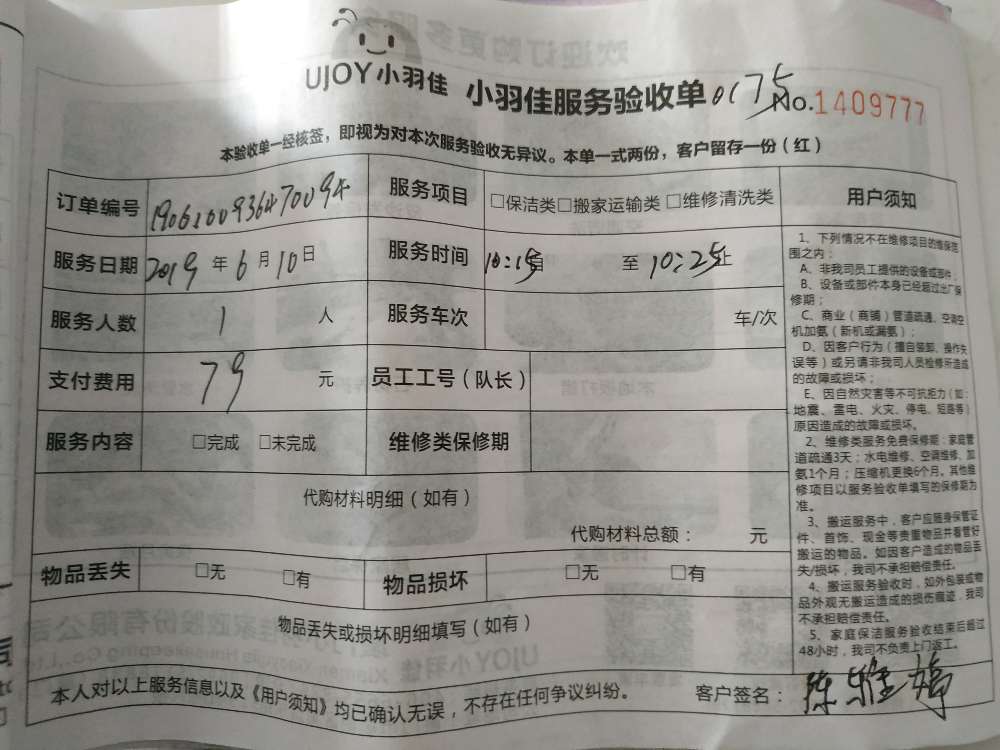 UJOY小羽佳 小羽佳服务验收单 0175 No.1409777
本验收单一经核签，即视为对本次服务验收无异议。本单一式两份，客户留存一份（红）
订单编号 服务项目 □保洁类□搬家运输类 □维修清洗类
服务日期 2019 年 6 月 10 日 服务时间 10:15 自 至 10:25 止
服务人数 1 人 服务车次 车/次
支付费用 79 元 员工工号（队长）
服务内容 □完成 □未完成 维修类保修期
代购材料明细（如有）
代购材料总额： 元
物品丢失 □无 □有 物品损坏 □无 □有
物品丢失或损坏明细填写（如有）
本人对以上服务信息以及《用户须知》均已确认无误，不存在任何争议纠纷。 客户签名： 陈雅婷
用户须知
1、下列情况不在维修项目的维保范
围之内：
A、非我司员工提供的设备或部件；
B、设备或部件本身已经超过出厂保
修期；
C、商业（商铺）管道疏通、空调空
机加氨（新机或漏氨）；
D、因客户行为（擅自装卸、操作失
误等）或另请非我司人员检修所造成
的故障或损坏；
E、因自然灾害等不可抗拒力（如：
地震、雷电、火灾、停电、短路等）
原因造成的故障或损坏。
2、维修类服务免费保修期：家庭管
道疏通3天；水电维修、空调维修、加
氨1个月；压缩机更换6个月。其他维
修项目以服务验收单填写的保修期为
准。
3、搬运服务中，客户应随身保管证
件、首饰、现金等贵重物品并看管好
搬运的物品。如因客户造成的物品丢
失/损坏，我司不承担赔偿责任。
4、搬运服务验收时，如外包装或物
品外观无搬运造成的损伤痕迹，我司
不承担赔偿责任。
5、家庭保洁服务验收结束后超过
48小时，我司不负责上门返工。